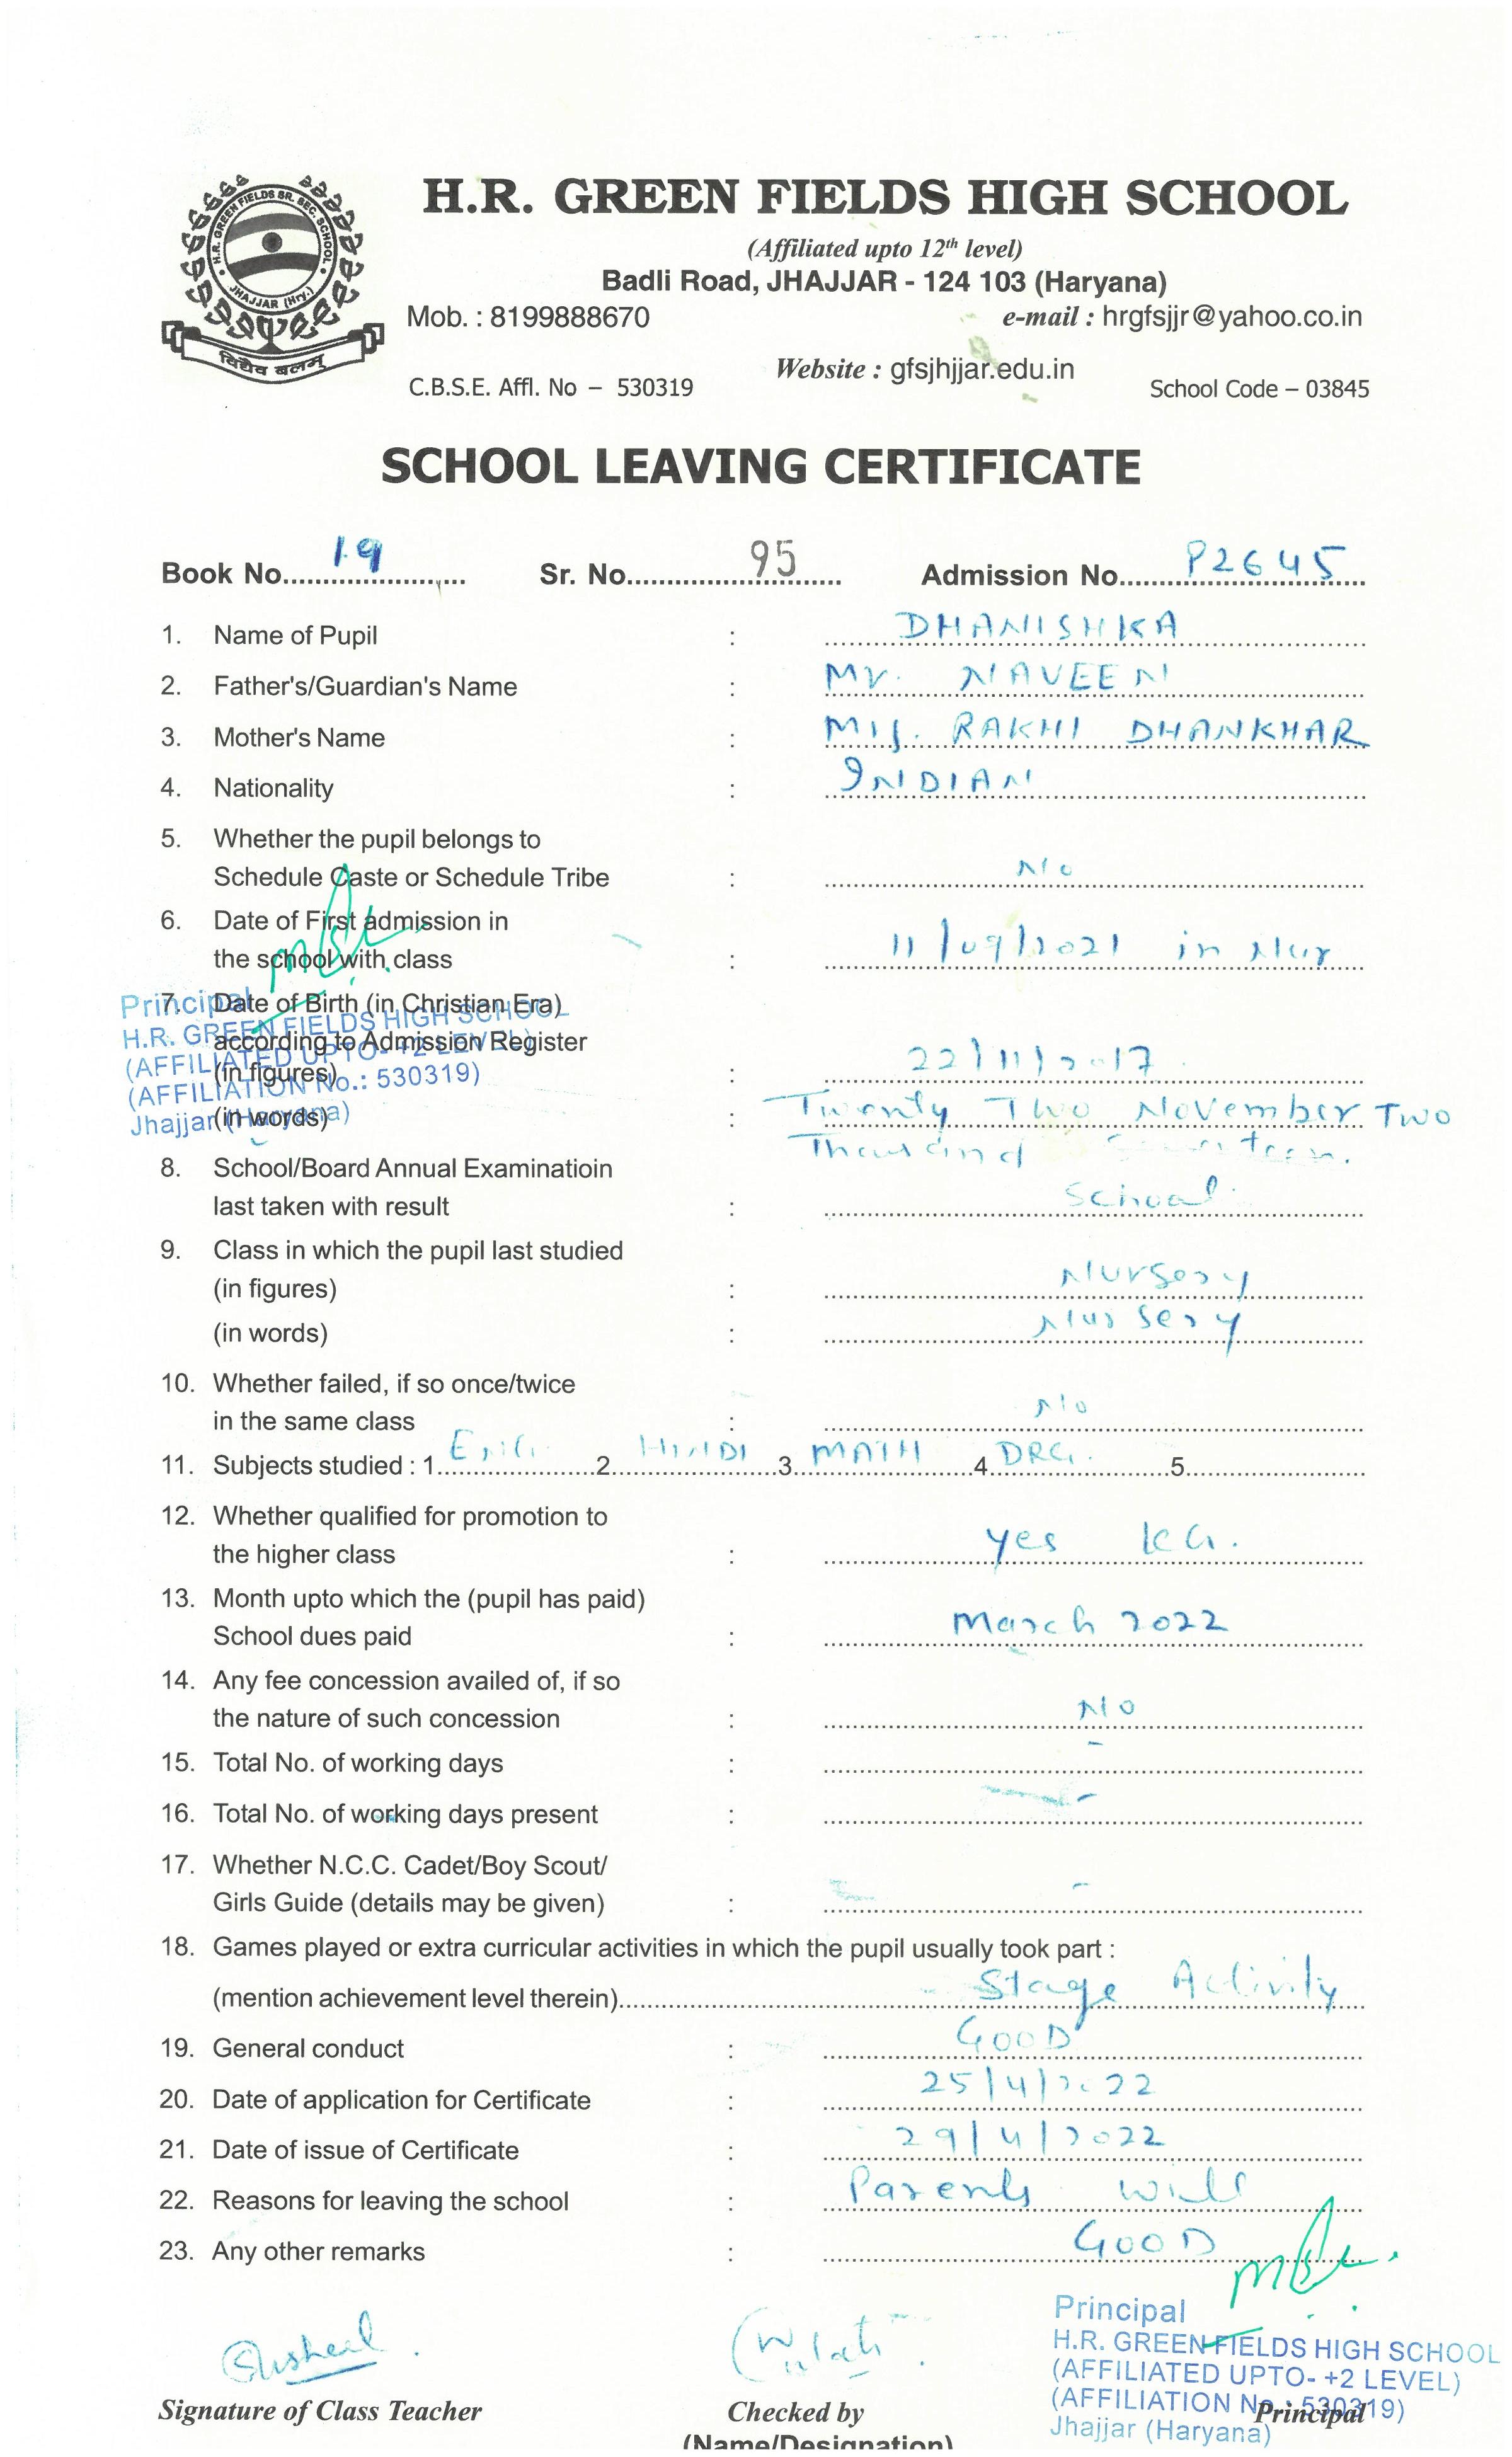 H.R. GREEN FIELDS SR. SEC. SCHOOL
JHAJJAR (Hry.)
विद्यैव बलम्
H.R. GREEN FIELDS HIGH SCHOOL
(Affiliated upto 12th level)
Badli Road, JHAJJAR - 124 103 (Haryana)
Mob. : 8199888670 e-mail : hrgfsjjr@yahoo.co.in
Website : gfsjhjjar.edu.in
C.B.S.E. Affl. No – 530319 School Code – 03845
SCHOOL LEAVING CERTIFICATE
Book No. 19 Sr. No. 95 Admission No. P2645
1. Name of Pupil : DHANISHKA
2. Father's/Guardian's Name : Mr. NAVEEN
3. Mother's Name : Mrs. RAKHI DHANKHAR
4. Nationality : INDIAN
5. Whether the pupil belongs to
Schedule Caste or Schedule Tribe : No
6. Date of First admission in
the school with class : 11/09/2021 in Nur
7. Date of Birth (in Christian Era)
according to Admission Register
(in figures) : 22/11/2017
(in words) : Twenty Two November Two
Thousand Seventeen.
Principal
H.R. GREEN FIELDS HIGH SCHOOL
(AFFILIATED UPTO- +2 LEVEL)
(AFFILIATION No.: 530319)
Jhajjar (Haryana)
8. School/Board Annual Examinatioin
last taken with result : School
9. Class in which the pupil last studied
(in figures) : Nursery
(in words) : Nursery
10. Whether failed, if so once/twice
in the same class : No
11. Subjects studied : 1. ENG. 2. HINDI 3. MATH 4. DRG. 5.
12. Whether qualified for promotion to
the higher class : yes KG.
13. Month upto which the (pupil has paid)
School dues paid : March 2022
14. Any fee concession availed of, if so
the nature of such concession : No
15. Total No. of working days : -
16. Total No. of working days present : -
17. Whether N.C.C. Cadet/Boy Scout/
Girls Guide (details may be given) : -
18. Games played or extra curricular activities in which the pupil usually took part :
(mention achievement level therein) Stage Activity
19. General conduct : GOOD
20. Date of application for Certificate : 25/4/2022
21. Date of issue of Certificate : 29/4/2022
22. Reasons for leaving the school : Parents will
23. Any other remarks : GOOD
Susheel
Principal
H.R. GREEN FIELDS HIGH SCHOOL
(AFFILIATED UPTO- +2 LEVEL)
(AFFILIATION No.: 530319)
Jhajjar (Haryana)
Signature of Class Teacher Checked by Principal
(Name/Designation)